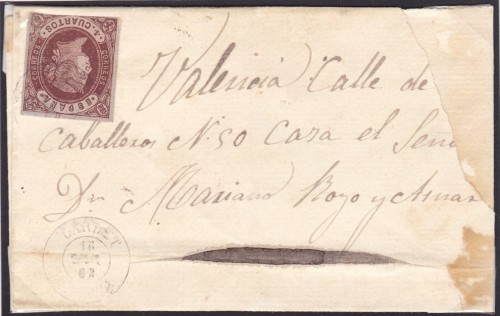 4 CUARTOS
CORREOS
CORREOS
ESPAÑA
Valencia Calle de
Caballeros N. 50 Casa el Seño
Dn Mariano Royo y Aznar
CARLET
16
62